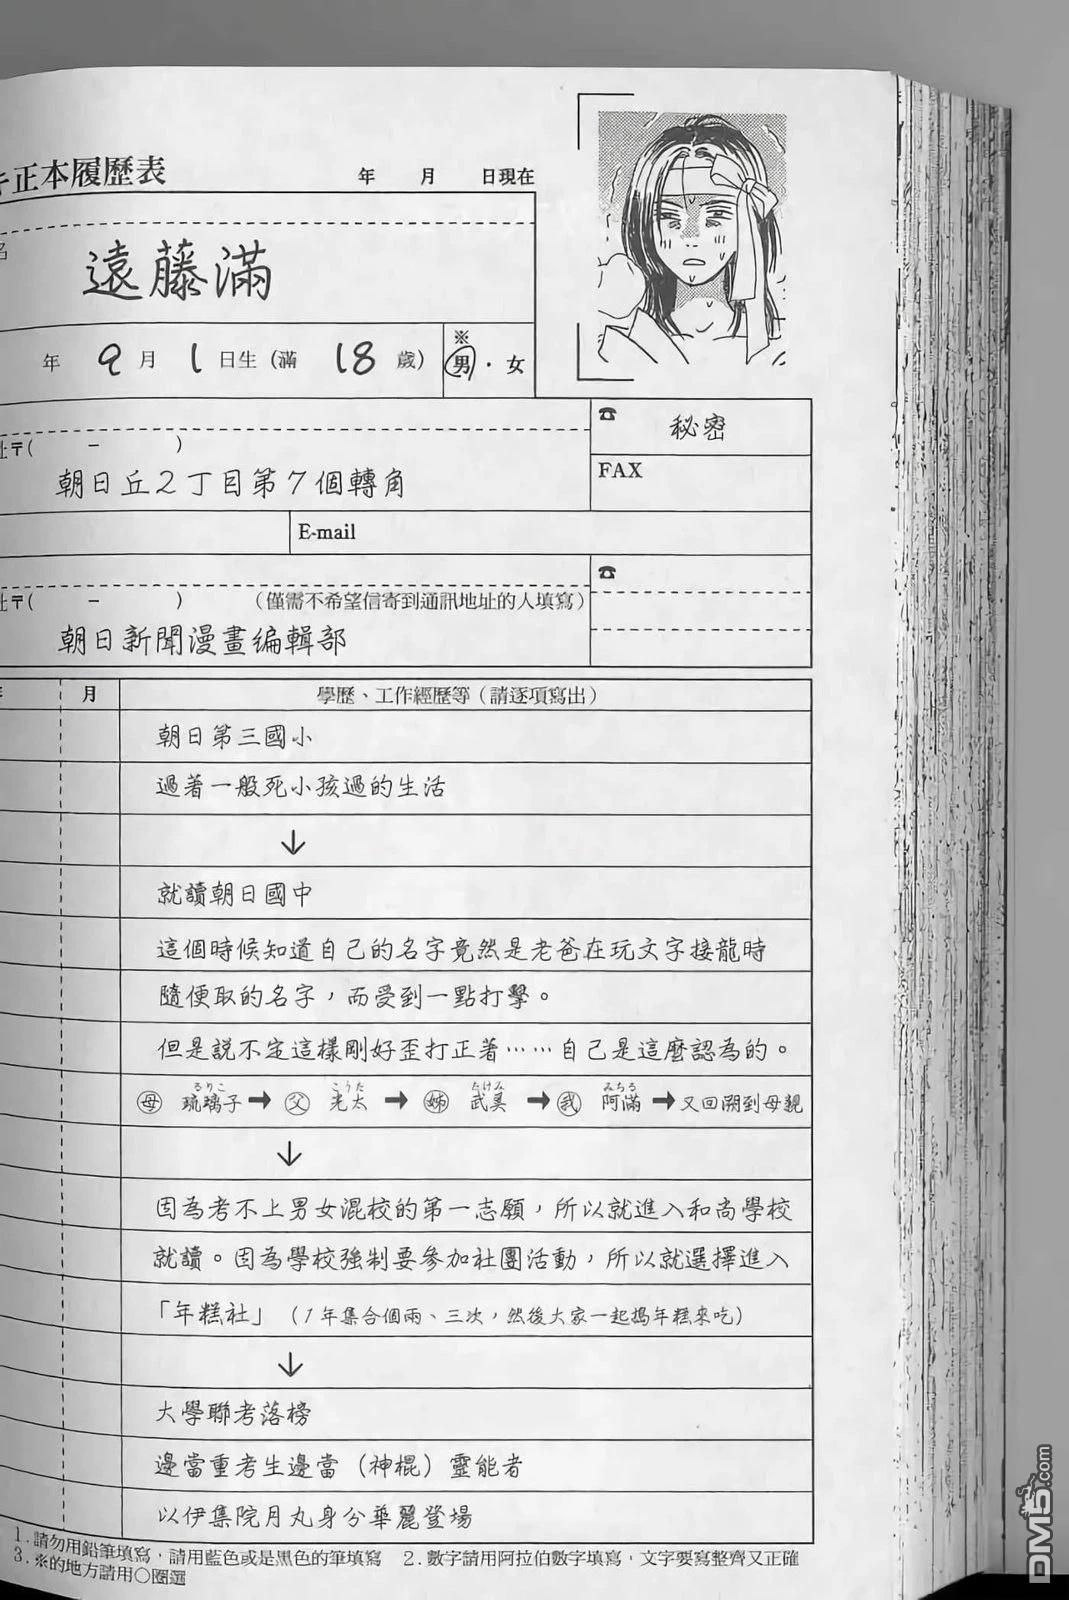 正本履歷表
年 月 日現在
名
遠藤滿
年 9月 1日生(滿 18 歲)
※
男・女
☎ 秘密
址〒( - )
朝日丘2丁目第7個轉角
FAX
E-mail
☎
址〒( - ) (僅需不希望信寄到通訊地址的人填寫)
朝日新聞漫畫編輯部
年 月 學歷、工作經歷等(請逐項寫出)
朝日第三國小
過著一般死小孩過的生活
↓
就讀朝日國中
這個時候知道自己的名字竟然是老爸在玩文字接龍時
隨便取的名字，而受到一點打擊。
但是說不定這樣剛好歪打正著……自己是這麼認為的。
るりこ こうた たけみ みちる
母 琉璃子→父 光太→姊 武美→我 阿滿→又回溯到母親
↓
因為考不上男女混校的第一志願，所以就進入和尚學校
就讀。因為學校強制要參加社團活動，所以就選擇進入
「年糕社」(1年集合個兩、三次，然後大家一起搗年糕來吃)
↓
大學聯考落榜
邊當重考生邊當(神棍)靈能者
以伊集院月丸身分華麗登場
1.請勿用鉛筆填寫，請用藍色或是黑色的筆填寫 2.數字請用阿拉伯數字填寫，文字要寫整齊又正確
3.※的地方請用○圈選
DM5.com